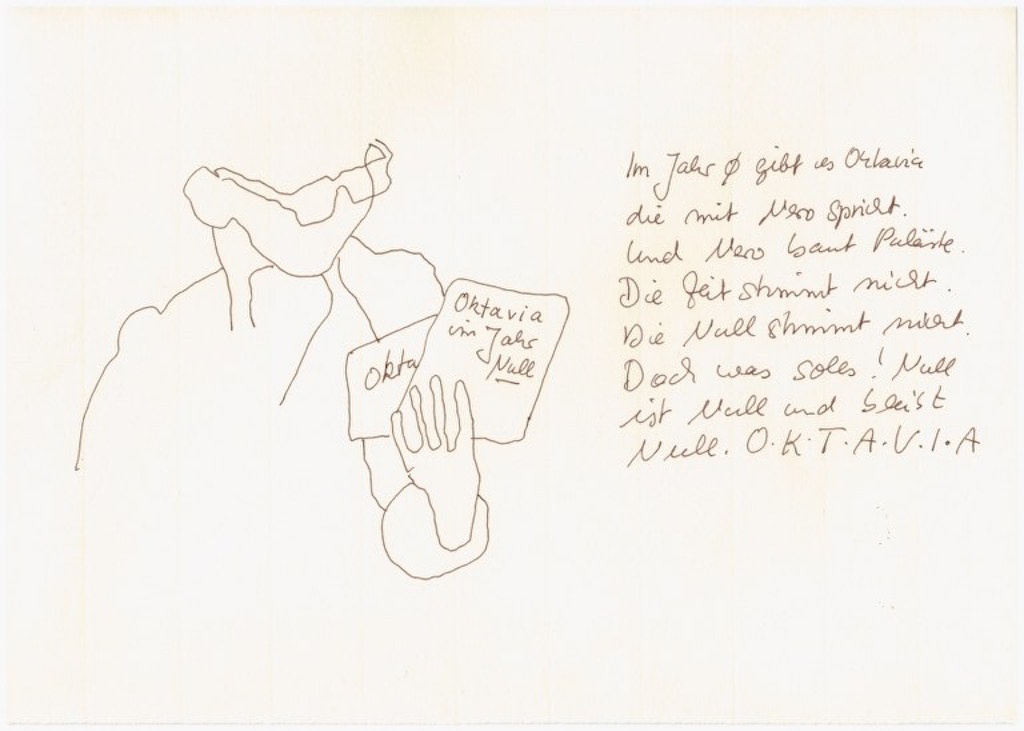 Okta
Oktavia
im Jahr
Null
Im Jahr Ø gibt es Oktavia
die mit Nero spricht.
Und Nero baut Paläste.
Die Zeit stimmt nicht.
Die Null stimmt nicht.
Doch was solls! Null
ist Null und bleibt
Null. O.K.T.A.V.I.A